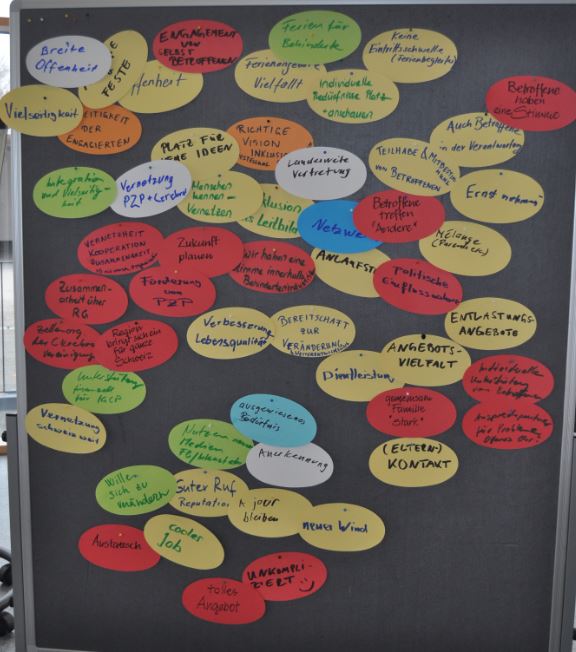 Breite
Offenheit
FESTE
ENGAGEMENT
VON
SELBST
BETROFFENEN
Ferien für
Behinderte
Keine
Eintrittsschwelle
(Ferienbegleiter)
Vielseitigkeit
Vielfalt
individuelle
Bedürfnisse
anschauen
Betroffene
haben
eine Stimme
DER
ENGAGIERTEN
PLATZ FÜR
IDEEN
RICHTIGE
VISION
INKLUSION
Landesweite
Vertretung
Auch Betroffene
in der Verantwortung
TEILHABE &
VON BETROFFENEN
Integration
und Vielseitig-
keit
Vernetzung
PZP + Cerebral
Menschen
kennen-
Vernetzen
Leitbild
Netzwe
Betroffene
treffen
"Andere"
Ernst nehmen
MÉLANGE
VERNETZHEIT
KOOPERATION
ZUSAMMENARBEIT
Zukunft
planen
Wir haben eine
Stimme innerhalb
ANLAUFST
Politische
Einflussnahme
Zusammen-
arbeit über
RG
Förderung
von
PZP
Verbesserung
Lebensqualität
BEREITSCHAFT
ZUR
VERÄNDERUNG
ENTLASTUNGS-
ANGEBOTE
der Cerebral
Vereinigung
Region
bringt sich ein
für ganze
Schweiz
ANGEBOTS-
VIELFALT
Dienstleistung
Individuelle
Unterstützung
von Betroffenen
Unterstützung
für
gemeinsam
Familie
stark
Ansprechpartner
für Probleme
Vernetzung
schweizweit
ausgewiesenes
Bedürfnis
Nutzen neue
Medien
Anerkennung
(ELTERN-)
KONTAKT
Willen
sich zu
verändern
Guter Ruf
Reputation
à jour
bleiben
neuer Wind
Austausch
cooler
Job
UNKOMPLI-
ZIERT
tolles
Angebot